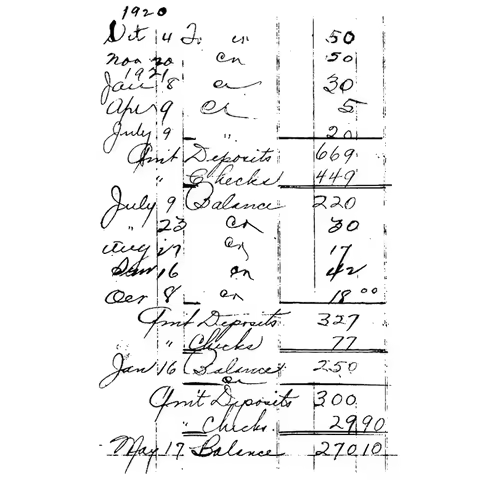 1920
Oct 4 To cr 50
Nov 20 Cr 50
1921
Jan 8 cr 30
Apr 9 Cr 5
July 9 " 20
Amt Deposits 669
" Checks 449
July 9 Balance 220
" 23 Cr 30
Aug 27 Cr 17
16 cr 42
Oct 8 cr 18 00
Amt Deposits 327
" Checks 77
Jan 16 Balance 250
cr
Amt Deposits 300
" Checks 29.90
May 17 Balance 270 10